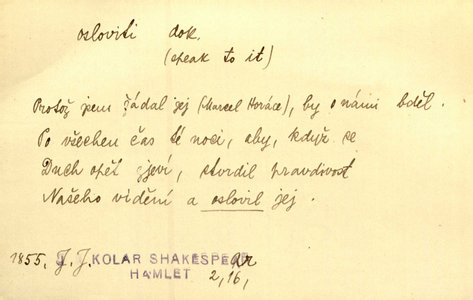 osloviti dok.
(speak to it)
Protož jsem žádal jej (Marcel Horáce), by o námi bděl.
Po všechen čas té noci, aby, když se
Duch opět zjeví, stvrdil pravdivost
Našeho vidění a oslovil jej.
1855. J. J. KOLAR SHAKESPEAR
HAMLET 2,16,